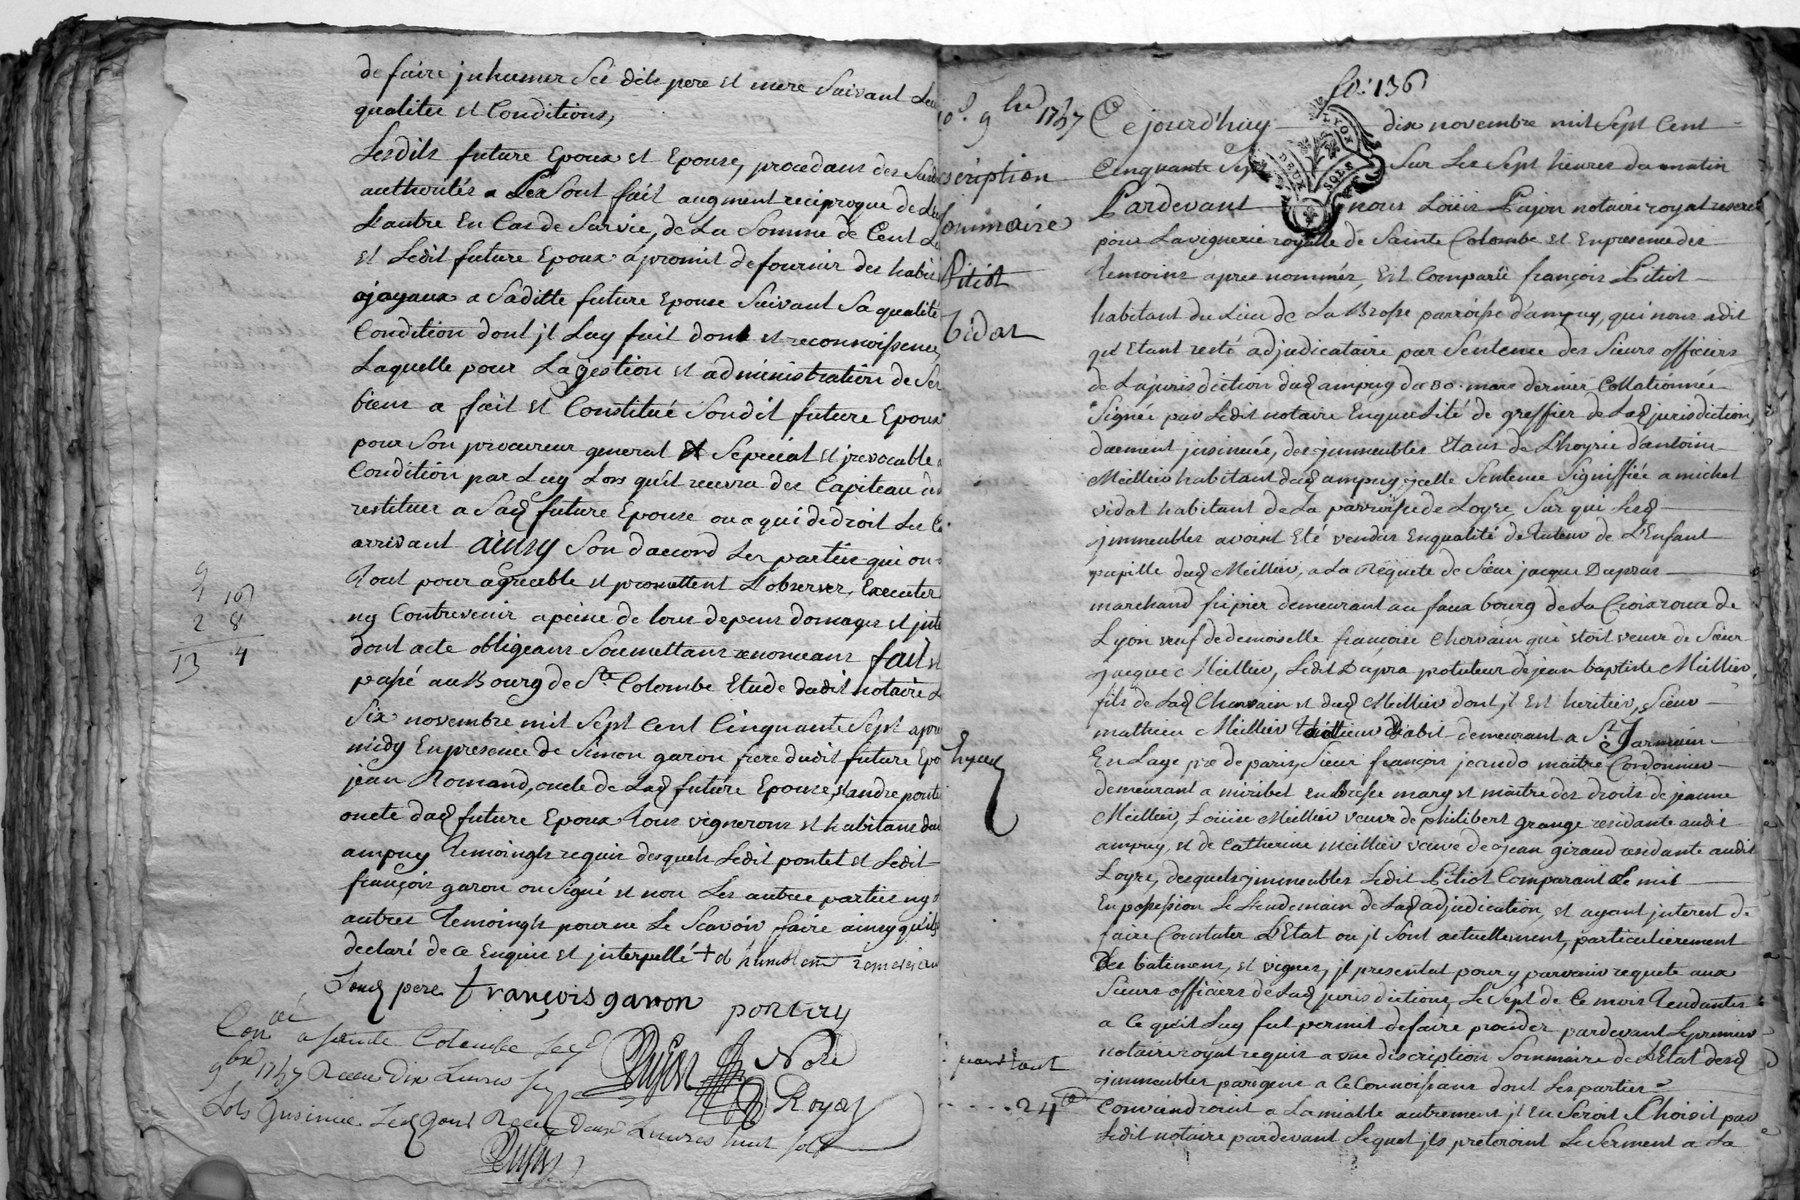 de faire jnhumer Ses dits pere et mere Suivant Leur
qualités et Conditions,
Lesdits future Epoux et Epouse, procedans des Susd
authorités Se Sont fait augment reciproque de L'un
L'autre En Cas de Survie, de La Somme de Cent
et Ledit future Epoux a promit de fournir des habis
ajoyaux a Saditte future Epouse Suivant Sa qualité
Condition dont jl Luy fait dont et reconnoissence,
Laquelle pour La gestion et administration de Ses
biens a fait et Constitué Sondit future Epoux
pour Son procureur general & Sepecial et jrevocable a
Condition par Luy Lors qu'il recevra des Capiteau d'en
restituer a Sad future Epouse ou a qui de droit Le Cas
arrivant ainsy Son d'accord Les parties qui on
Tout pour agreable et promettent L'observer, Executer
ny Contrevenir a peine de tous depens domages et jnte
dont acte obligeans Soumettans renonceans fait et
passé au Bourg de Ste Colombe Etude dudit notaire Le
Six novembre mil Sept Cent Cinquante Sept apres
midy En presence de Simon garon frere dudit future Epo
jean Romand, oncle de Lad future Epouse, et andre pontet
oncle dud future Epoux Tous vignerons et habitans dud
ampuy Temoingts requis desquels Ledit pontet et Ledit
françois garon on Signé et non Les autres parties ny
autres Temoingts pour ne Le Scavoir faire ainsy qu'ils
declaré de ce Enquis et jnterpellé +
Lond pere françois garron pontey
Not
Royal
Con a Sainte Colombe Le
9bre 1757 Receu Dix Livres
Sols Insinué Led Jour Receu Deux Livres huit sols
9
4 16
2 8
13 4
fo: 136
10e 9bre 1757
scription
Sommaire
Pitiot
Vidat
Ce jourd'huy dix novembre mil Sept Cent
Cinquante Sept Sur Les Sept heures du matin
Pardevant nous Loüis Pajon notaire royal reservé
LYON
DEUX SOLS
pour La viguerie royalle de Sainte Colombe et En presence des
Temoins apres nommés, Est Comparu françois Pitiot
habitant du Lieu de La Brosse parroisse d'ampuy, qui nous a dit
qu'Etant resté adjudicataire par Sentence des Sieurs officiers
de La jurisdiction dud ampuy du 30. mars dernier Collationnée
Signée par Ledit notaire En qualité de greffier de Lad jurisdiction,
duement jnsinuée, des jmmeubles Etans de L'hoyrie d'antoine
Meillier habitant dud ampuy, jcelle Sentence Signiffiée a michel
vidat habitant de La parroisse de Loyre, Sur qui Lesd
jmmeubles avoint Eté vendus En qualité de Tuteur de L'Enfant
pupille dud Meillier, a La Requete de Sieur jacque Dupras
marchand fripier demeurant au faux bourg de La Croix rouce de
Lyon veuf de demoiselle françoise Chervain qui Etoit veuve de Sieur
jacque Meillier, Ledit Dupra protuteur de jean baptiste Meillier,
fils de Lad Chervain et dud Meillier dont jl Est heritier, Sieur
mathieu Meillier Tailleur d'habit demeurant a St Jarmain
En Laye pre de paris, Sieur françois jeando maitre Cordonnier
demeurant a miribel En bresse mary et maitre des droits de jeanne
Meillier, Loüise Meillier veuve de philibert grange residante audit
ampuy, et de Catherine Meillier veuve de jean giraud residante audit
Loyre, desquels jmmeubles Ledit Pitiot Comparant Se mit
En possession Le Lendemain de Lad adjudication, et ayant jnterest de
faire Constater L'Etat ou jl Sont actuellement, particulierement
Des batimens, et vignes, jl presentat pour y parvenir requete aux
Sieurs officiers de Lad jurisdiction, Le Sept de Ce mois Tendantes
a Ce qu'il Luy fut permit de faire proceder pardevant Le premier
notaire royal requis a une discription Sommaire de L'Etat desd
jmmeubles par gens a Ce Connoissans dont Les parties
Conviendroint a L'amiable autrement jl En Seroit Choisit par
Ledit notaire pardevant Lequel jls preteroint Le Serment a La
24